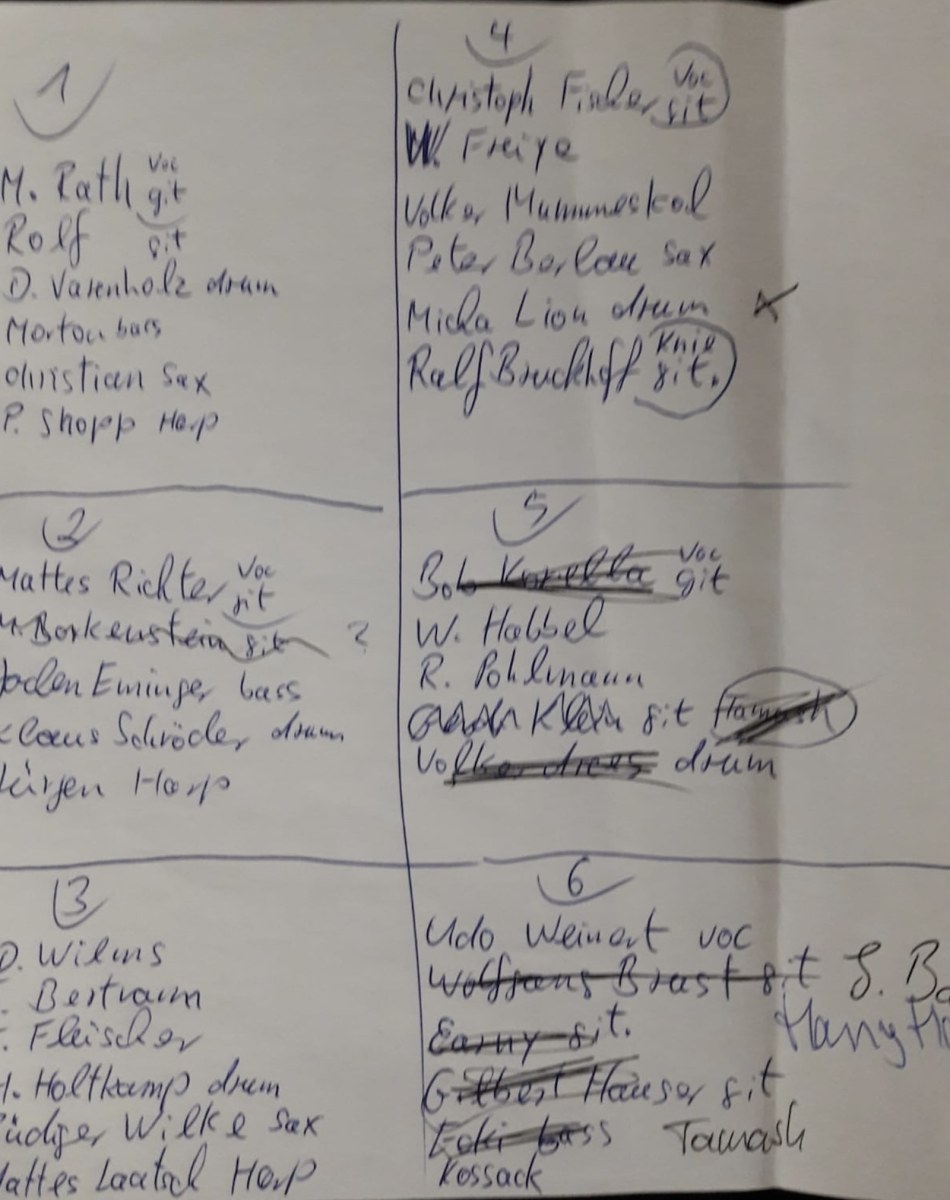 1
M. Rath voc git
Rolf git
D. Varenholz drum
Morton bass
Christian Sax
P. Shopp Harp
2
Mattes Richter voc git
Borkenstein git ?
Eminger bass
Klaus Schröder drum
Jürgen Harp
3
D. Wilms
Bertram
Fleischer
H. Holtkamp drum
Rüdiger Wilke Sax
Mattes Laatsch Harp
4
Christoph Fisher voc git
W. Freiye
Volker Mummeskol
Peter Borlau Sax
Micha Lion drum x
Ralf Bruckhoff Knie git.
5
Bob Korella voc git
W. Habbel
R. Pohlmann
Klein git
Volker drees drum
6
Udo Weinert voc
Wolfgang Brast git S. B
Earny git. Harry
Gilbert Hauser git
Ecki bass Tamash
Kossack